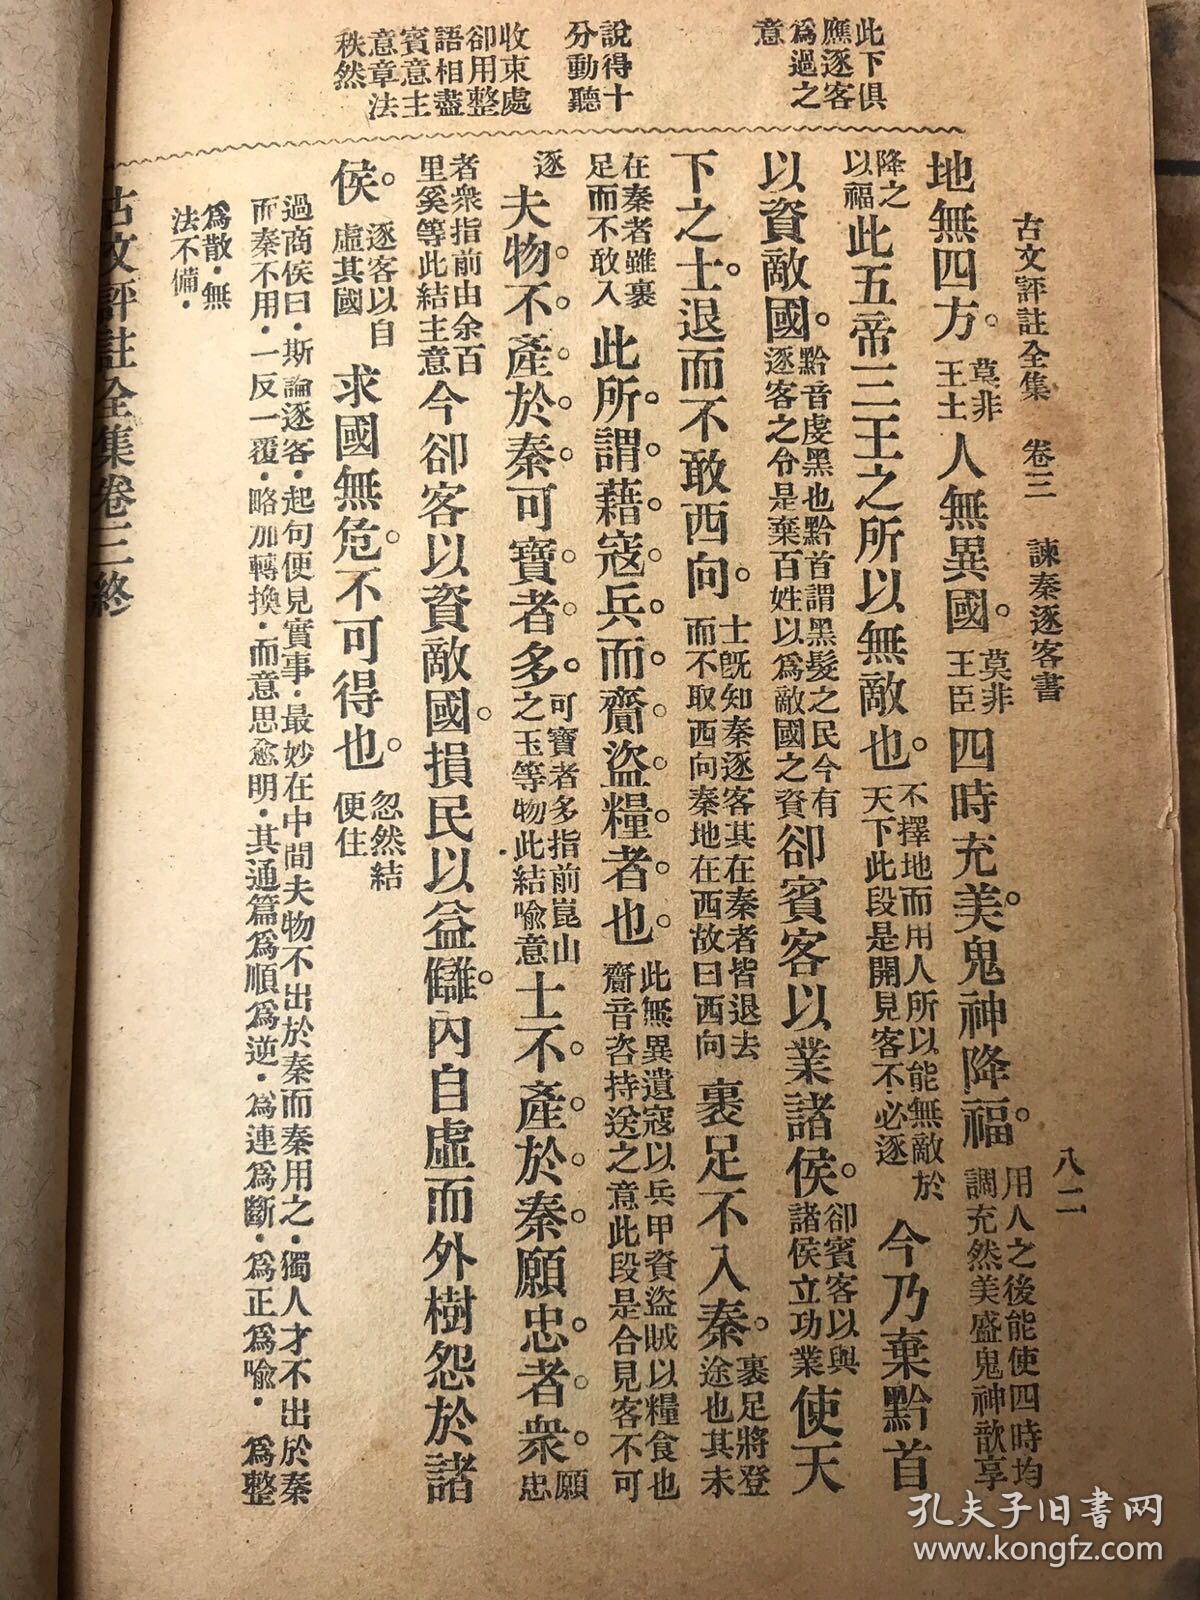 古文評註全集　卷三　諫秦逐客書　八二
此下俱
應逐客
爲過之
意
說得十
分動聽
收束處
卻用整
語相盡
賓意主
意章法
秩然
地無四方。莫非王土人無異國。莫非王臣四時充美。鬼神降福。用人之後能使四時均調充然美盛鬼神歆享
降之以福此五帝三王之所以無敵也。不擇地而用人所以能無敵於天下此段是開見客不必逐今乃棄黔首
以資敵國。黔音虔黑也黔首謂黑髮之民今有逐客之令是棄百姓以爲敵國之資卻賓客以業諸侯。卻賓客以與諸侯立功業使天
下之士。退而不敢西向。士旣知秦逐客其在秦者皆退去而不取西向秦地在西故曰西向裹足不入秦。裹足將登途也其未
在秦者雖裹足而不敢入此所謂藉寇兵。而齎盜糧者也。此無異遺寇以兵甲資盜賊以糧食也齎音咨持送之意此段是合見客不可
逐夫物不產於秦。可寶者多。可寶者多指前崑山之玉等物此結喻意士不產於秦。願忠者衆。願忠
者衆指前由余百里奚等此結主意今卻客以資敵國。損民以益讎。內自虛而外樹怨於諸
侯。逐客以自虛其國求國無危。不可得也。忽然結便住
過商侯曰．斯論逐客．起句便見實事．最妙在中間夫物不出於秦而秦用之．獨人才不出於秦
而秦不用．一反一覆．略加轉換．而意思愈明．其通篇爲順爲逆．爲連爲斷．爲正爲喻．爲整
爲散．無
法不備．
古文評註全集卷三終
孔夫子旧书网
www.kongfz.com